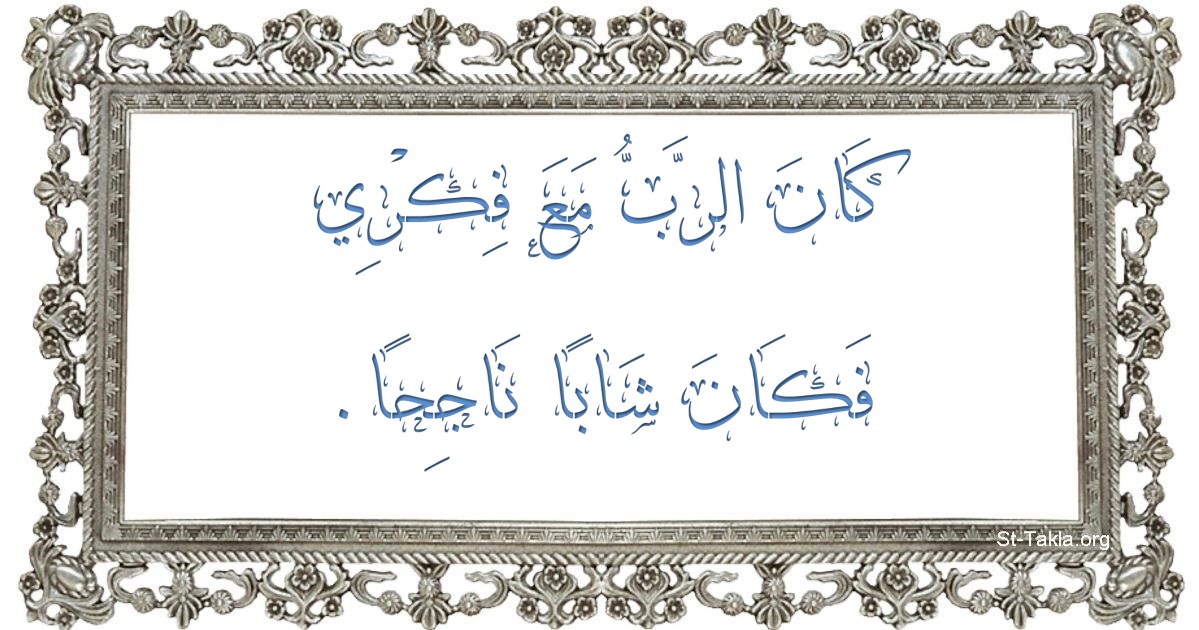 كَانَ الرَّبُّ مَعَ فِكْرِي
فَكَانَ شَابًا نَاجِحًا .
St-Takla.org